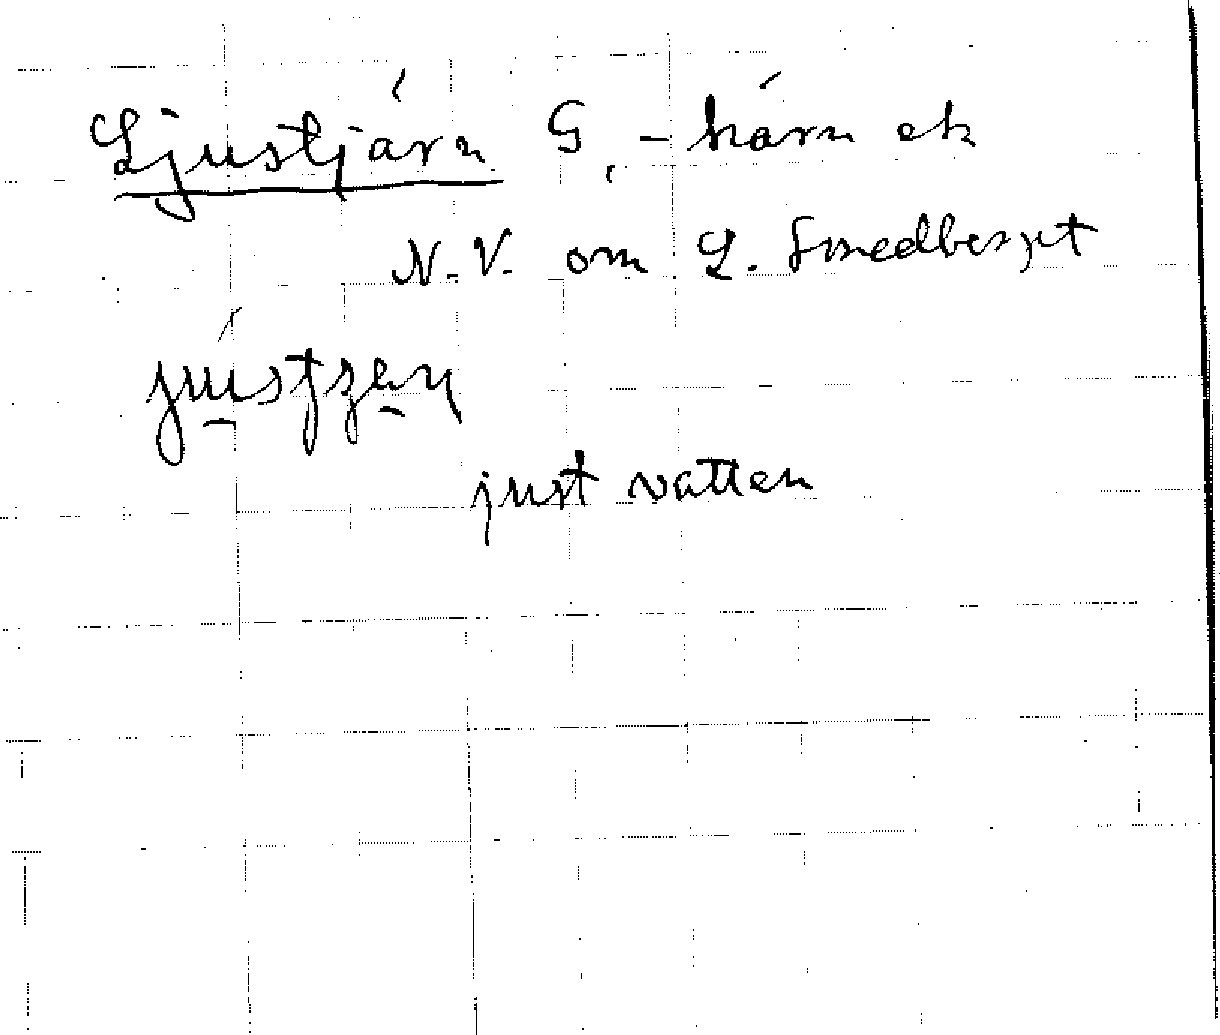 Ljustjärn G, -kärn ek
N.V. om L. Smedberget
just vatten